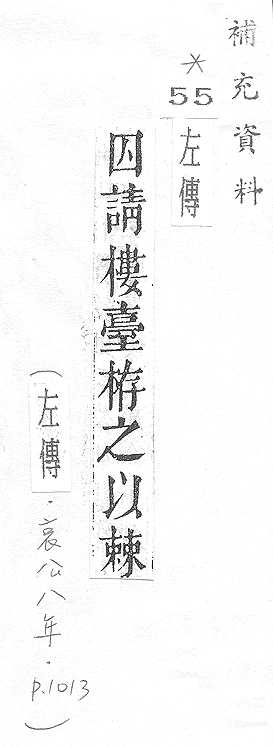 補充資料
*
55
左傳
囚請樓臺栫之以棘
(左傳·哀公八年·p.1013)